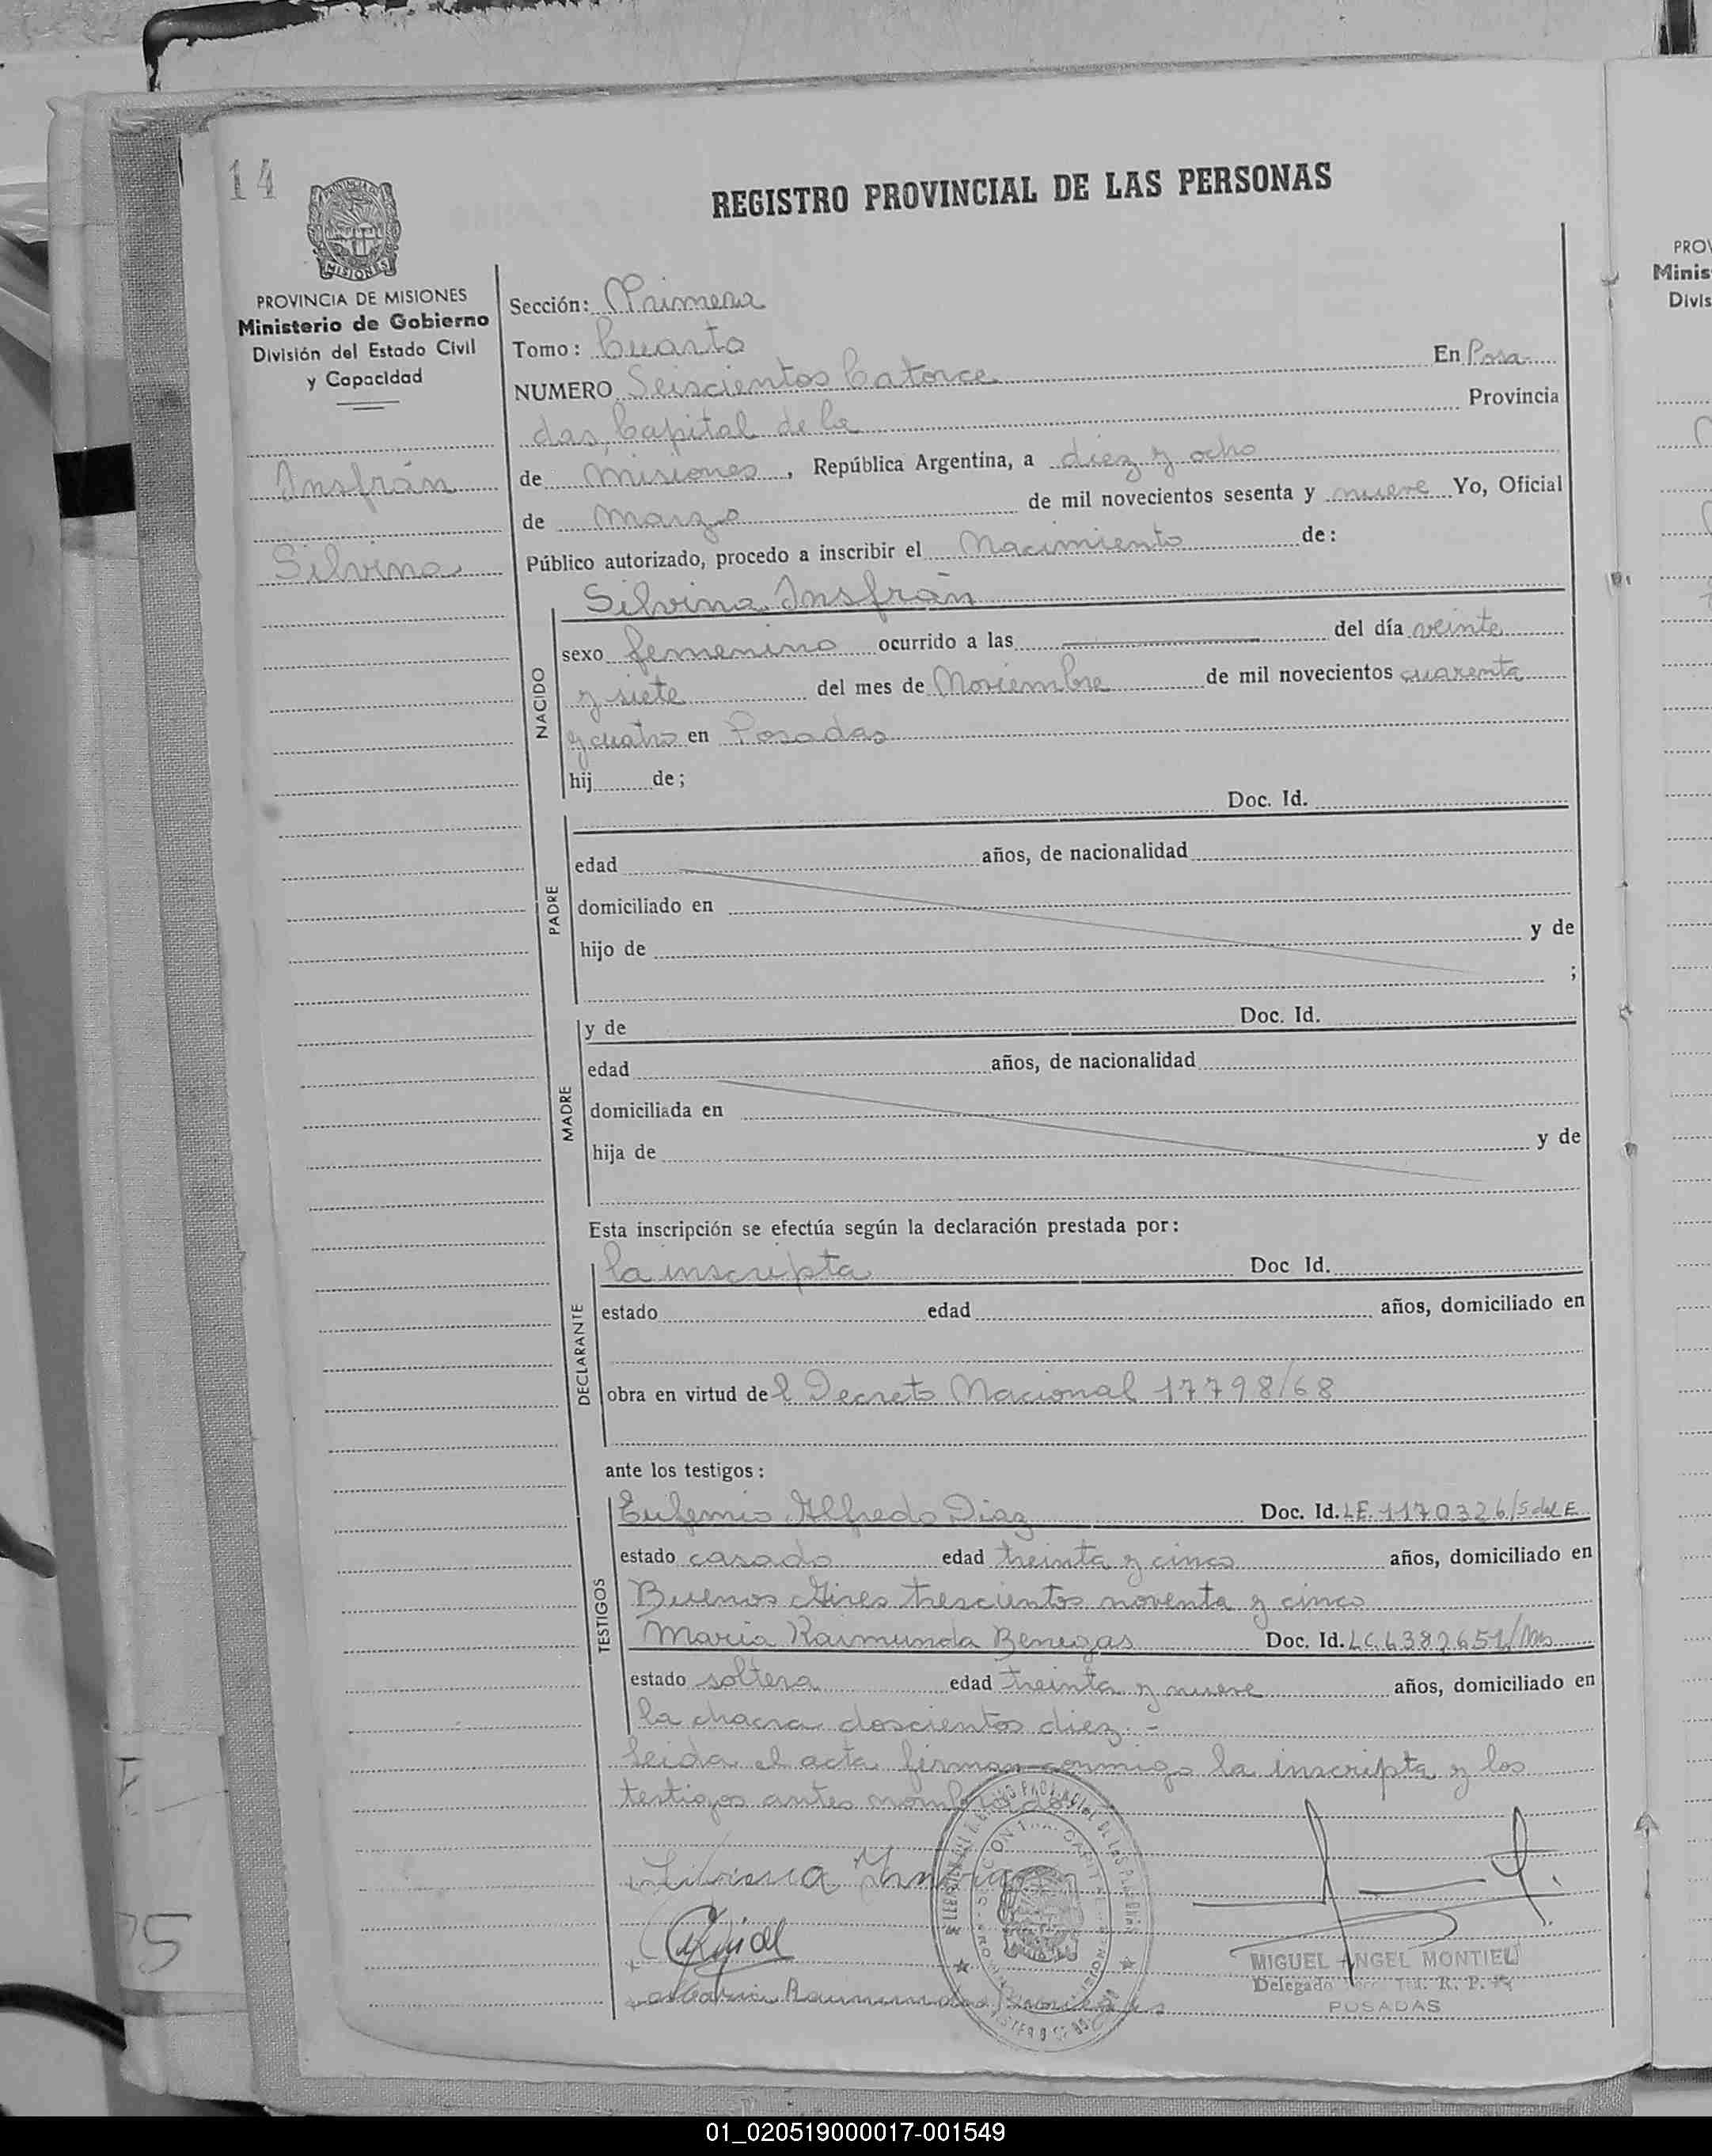 14
REGISTRO PROVINCIAL DE LAS PERSONAS
PROVINCIA DE MISIONES
Ministerio de Gobierno
División del Estado Civil
y Capacidad
Insfrán
Silvina
Sección: Primera
Tomo: Cuarto
NUMERO Seiscientos Catorce En Posa-
das, Capital de la Provincia
de Misiones, República Argentina, a diez y ocho
de Marzo de mil novecientos sesenta y nueve Yo, Oficial
Público autorizado, procedo a inscribir el Nacimiento de:
Silvina Insfrán
NACIDO
sexo femenino ocurrido a las del día veinte
y siete del mes de Noviembre de mil novecientos cuarenta
y cuatro en Posadas
hij de;
PADRE
Doc. Id.
edad años, de nacionalidad
domiciliado en
hijo de y de
;
MADRE
y de Doc. Id.
edad años, de nacionalidad
domiciliada en
hija de y de
Esta inscripción se efectúa según la declaración prestada por:
DECLARANTE
la inscripta Doc Id.
estado edad años, domiciliado en
obra en virtud del Decreto Nacional 17798/68
ante los testigos:
TESTIGOS
Eufemio Alfredo Diaz Doc. Id. LE. 1170326/S del E.
estado casado edad treinta y cinco años, domiciliado en
Buenos Aires trescientos noventa y cinco
Maria Raimunda Benegas Doc. Id. LC. 6382651/Ms
estado soltera edad treinta y nueve años, domiciliado en
la chacra doscientos diez. -
Leida el acta firman conmigo la inscripta y los
testigos antes nombrados
Silvina
Maria Raimunda Benegas
MIGUEL ANGEL MONTIEL
Delegado R. P. P.
POSADAS
PROV
Minis
Divis
01_020519000017-001549